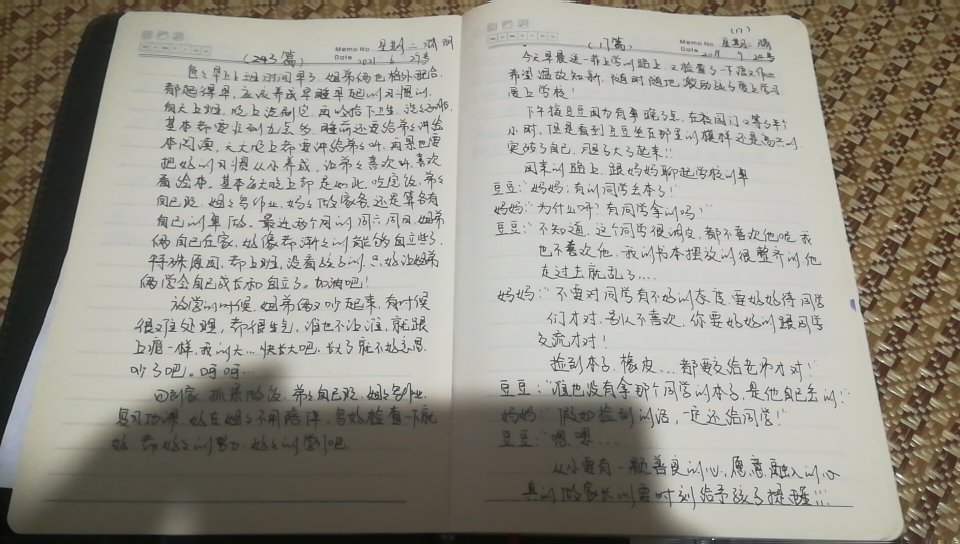 (243篇)
Memo No. 星期二 晴
Date 2021 6
爸爸早上上班时间早了,姐弟俩也格外配合,
都起得早,应该养成早睡早起的习惯的,
白天上班,晚上洗刷完,再收拾下卫生,洗衣服,
基本都要长到九点多,睡前还要给弟弟讲绘
本阅读,天天晚上都要讲给弟弟听,再累也要
把好的习惯从小养成,让弟弟喜欢听,喜欢
看绘本,基本每天晚上都是如此,吃完饭,弟弟
自己玩,姐姐写作业,妈妈做家务,还是算各有
自己的事做,最近两个周的周六周日,姐弟
俩自己在家,好像都渐渐的能够自立些了,
特殊原因,都上班,没看孩子的,只好让姐弟
俩学会自己成长和自立了。加油吧!
放学的时候,姐弟俩又吵起来,有时候
很难处理,都很生气,谁也不让谁,就跟
上瘾一样,我的天...快长大吧,长大了就不好意思
吵了吧。呵呵...
回到家,抓紧吃饭,弟弟自己玩,姐姐写作业,
复习功课,好在姐姐不用陪伴,写好检查一下就
好,都好好的努力,好好的学习吧。
(17篇) (17)
Memo No. 星期二 晴
Date 9 24号
今天早晨送一非上学的路上,又检查了一下语文作业
希望温故知新,随时随地,激励孩子爱上学习
爱上学校!
下午接豆豆因为有事晚了点,在校园门口等了半个
小时,但是看到豆豆坐在那里的模样还是高兴的
突破了自己,胆子大了起来!!
回来的路上,跟妈妈聊起学校的事
豆豆:“妈妈,有的同学丢本了!”
妈妈:“为什么呀?有同学拿的吗?”
豆豆:“不知道,这个同学很调皮,都不喜欢他呢,我
也不喜欢他,我的书本摆放的很整齐的他
走过去就乱了....
妈妈:“不要对同学有不好的态度,要好好待同学
们才对,别人不喜欢,你要好好的跟同学
交流才对!
捡到本子、橡皮...都要交给老师才对!”
豆豆:“谁也没有拿那个同学的本子,是他自己丢的!”
妈妈:“假如捡到的话,一定还给同学!”
豆豆:“嗯,嗯....
从小要有一颗善良的心,愿意融入的心
真的做家长的要时刻给予孩子提醒!!!